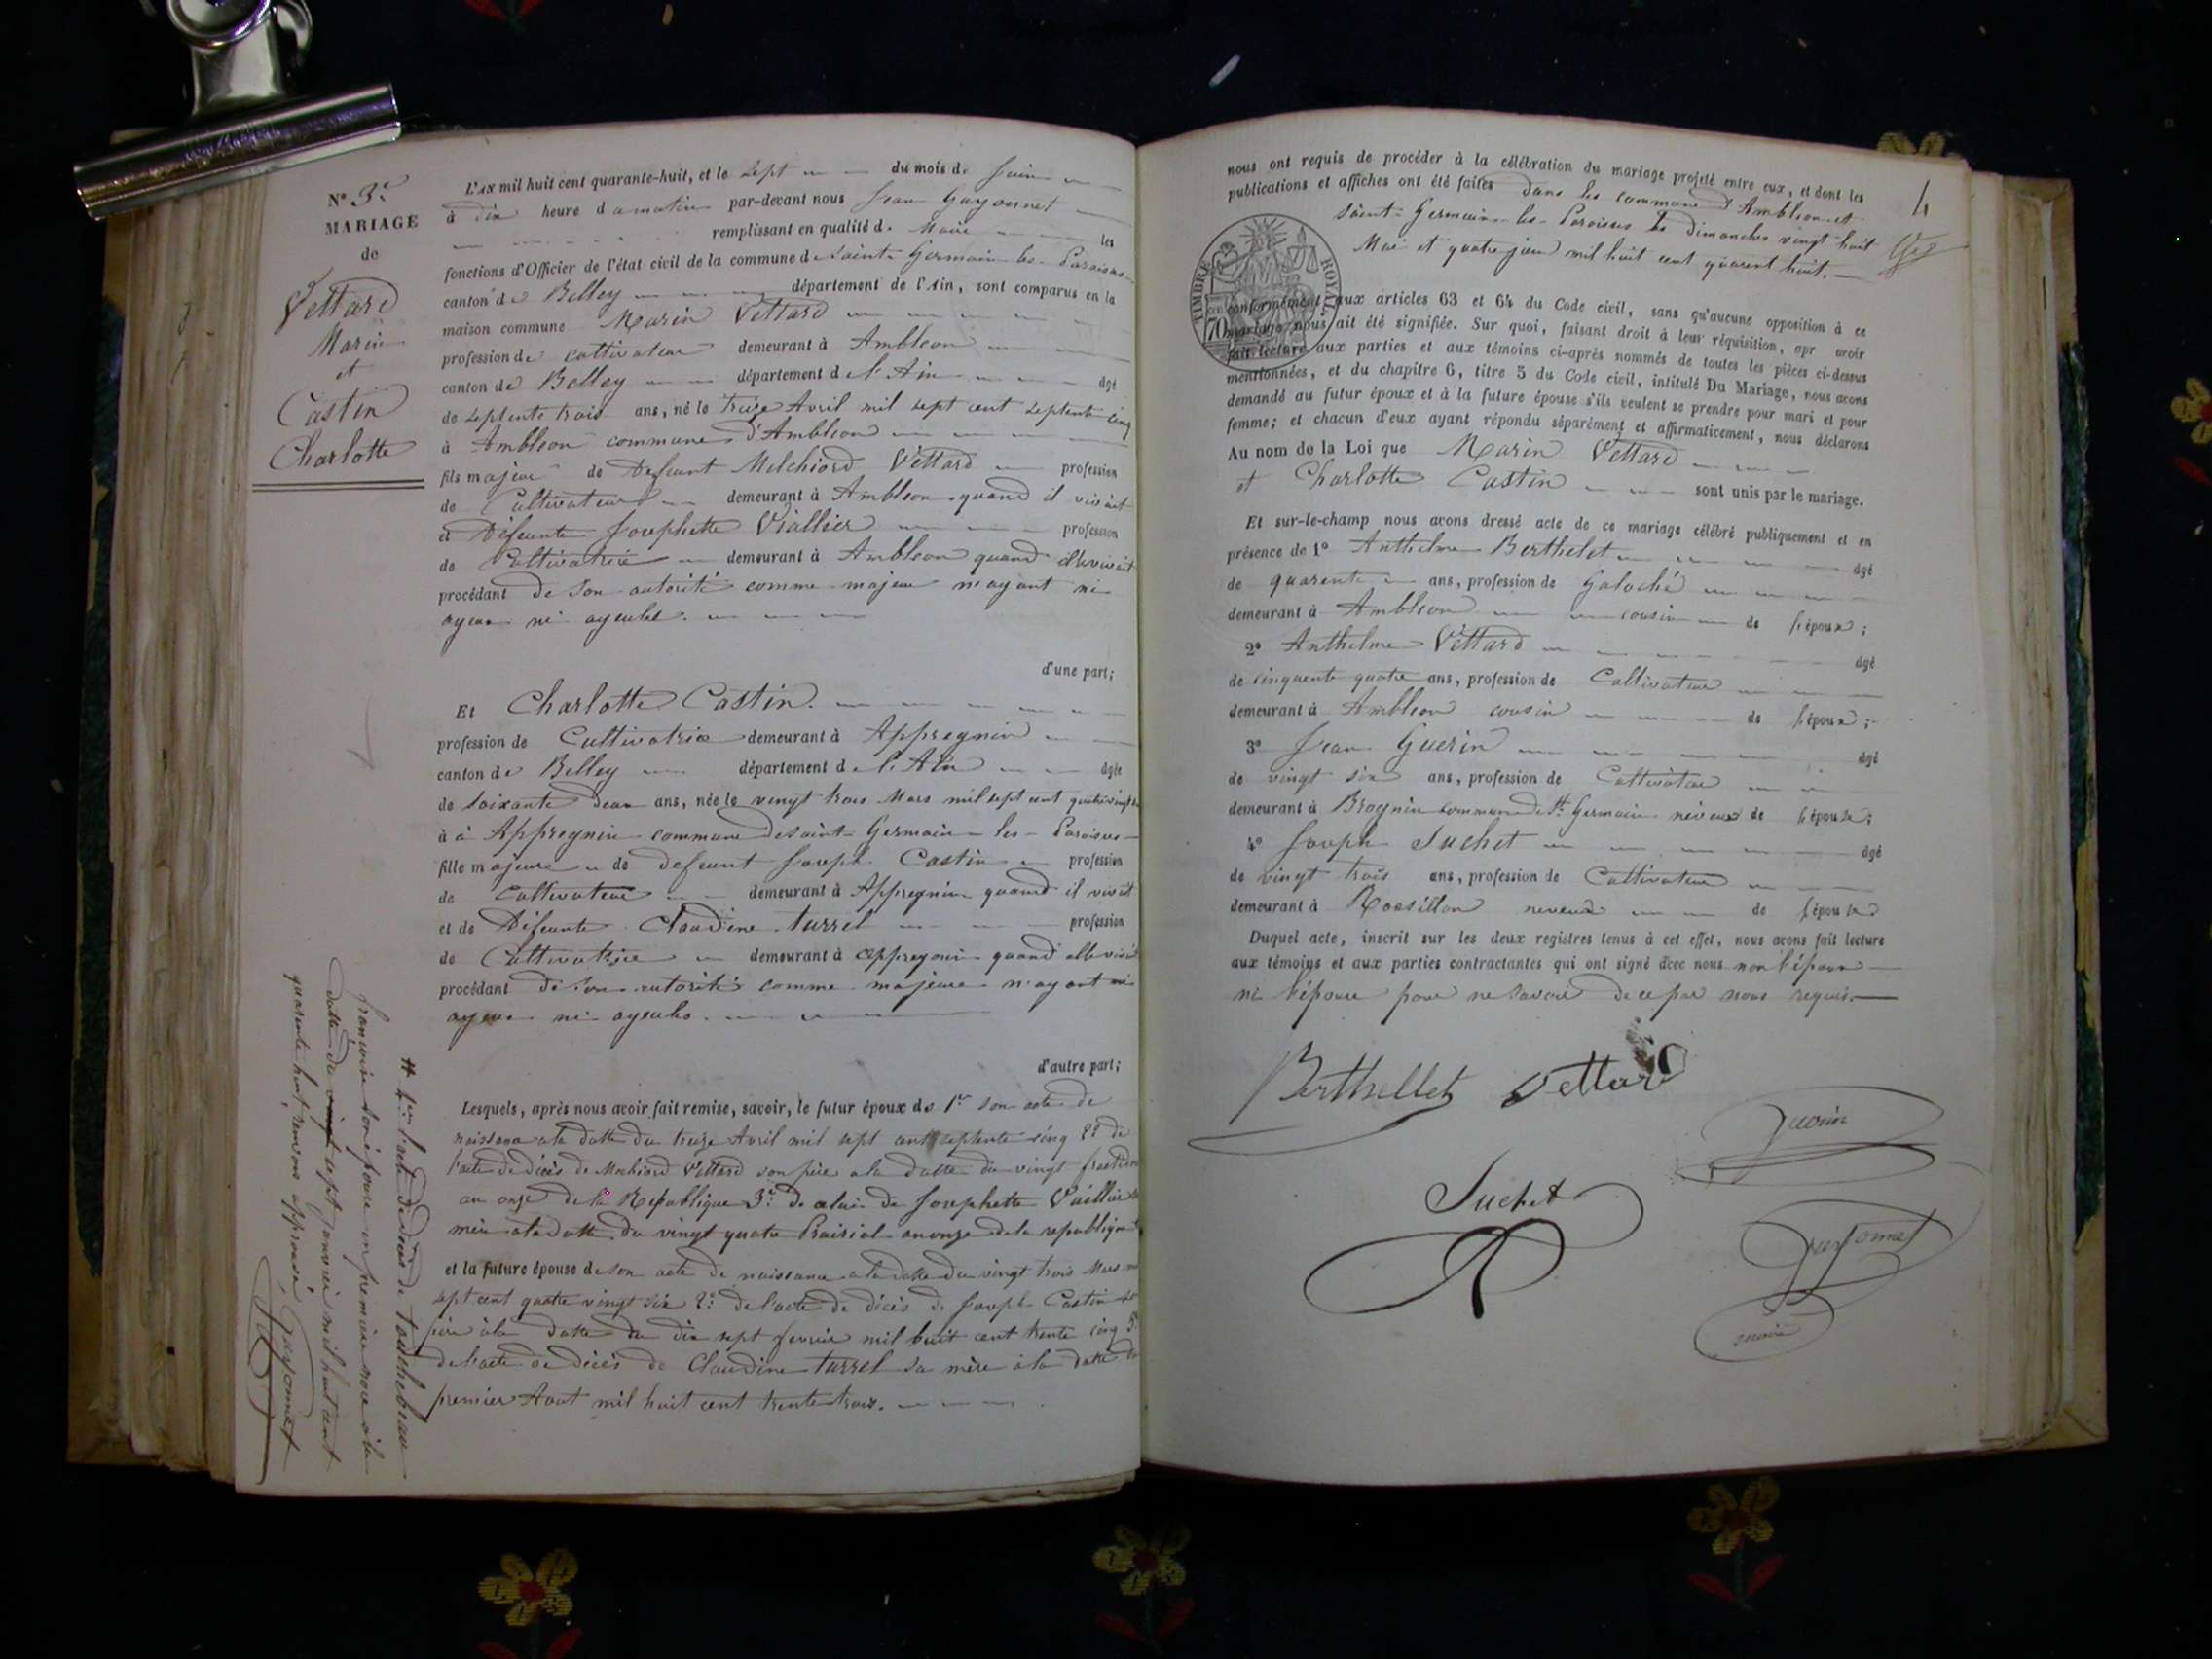 N° 3e
MARIAGE
de
Vettard
Marin
et
Castin
Charlotte
L'AN mil huit cent quarante-huit, et le sept du mois de Juin
à dix heure du matin par-devant nous Jean Guyonnet
remplissant en qualité de Maire les
fonctions d'Officier de l'état civil de la commune de Saint-Germain-les-Paroisses
canton de Belley département de l'Ain, sont comparus en la
maison commune Marin Vettard
profession de cultivateur demeurant à Ambleon
canton de Belley département de l'Ain âgé
de septente trois ans, né le treize Avril mil sept cent septente cinq
à Ambleon commune d'Ambleon
fils majeur de Defeunt Melchiord Vettard profession
de Cultivateur demeurant à Ambleon quand il vivait
et Défeunte Josephette Viallier profession
de Cultivatrice demeurant à Ambleon quand elle vivait
procédant de son autorité comme majeur n'ayant ni
ayeux ni ayeules.
d'une part;
Et Charlotte Castin.
profession de Cultivatrice demeurant à Appregnin
canton de Belley département de l'Ain âgée
de soixante deux ans, née le vingt trois Mars mil sept cent quatrevingt
à à Appregnin commune de saint-Germain-les-Paroisses
fille majeure de defeunt Joseph Castin profession
de Cultivateur demeurant à Appregnin quand il vivait
et de Défeunte Claudine Turrel profession
de Cultivatrice demeurant à Appregnin quand elle vivait
procédant de son autorité comme majeure n'ayant ni
ayeux ni ayeules.
d'autre part;
Lesquels, après nous avoir fait remise, savoir, le futur époux de 1er son acte de
naissance a la datte du treize Avril mil sept cent septente cinq 2e de
l'acte de décès de Melchiord Vettard son père a la datte du vingt
an onze de la République 3e de celui de Josephette Viallier
mère a la datte du vingt quatre Prairial an onze de la republique
et la future épouse de son acte de naissance a la datte du vingt trois Mars
sept cent quatre vingt six 2e de l'acte de décès de Joseph Castin
père à la datte du dix sept fevrier mil huit cent trente cinq 3e
de l'acte de décès de Claudine Turrel sa mère à la datte du
premier Aout mil huit cent trente trois.
l'acte de décès de
françoise son épouse en premiere noce à la
datte du vingt sept janvier mil huit cent
quarente huit, renvois approuvé, Guyonnet
4
nous ont requis de procéder à la célébration du mariage projeté entre eux, et dont les
publications et affiches ont été faites dans les commune d'Ambleon et
saint-Germain-les-Paroisses les dimanches vingt huit
Mai et quatre juin mil huit cent quarent huit.
TIMBRE ROYAL
70
conformément aux articles 63 et 64 du Code civil, sans qu'aucune opposition à ce
mariage nous ait été signifiée. Sur quoi, faisant droit à leur réquisition, apr avoir
fait lecture aux parties et aux témoins ci-après nommés de toutes les pièces ci-dessus
mentionnées, et du chapitre 6, titre 5 du Code civil, intitulé Du Mariage, nous avons
demandé au futur époux et à la future épouse s'ils veulent se prendre pour mari et pour
femme; et chacun d'eux ayant répondu séparément et affirmativement, nous déclarons
Au nom de la Loi que Marin Vettard
et Charlotte Castin sont unis par le mariage.
Et sur-le-champ nous avons dressé acte de ce mariage célébré publiquement et en
présence de 1° Anthelme Berthelet âgé
de quarente ans, profession de Galoché
demeurant à Ambleon cousin de l'époux;
2° Anthelme Vettard âgé
de cinquente quatre ans, profession de Cultivateur
demeurant à Ambleon cousin de l'époux;
3° Jean Guerin âgé
de vingt six ans, profession de Cultivateur
demeurant à Brognin commune de St Germain neveux de l'épouse;
4° Joseph Suchet âgé
de vingt trois ans, profession de Cultivateur
demeurant à Rossillon neveux de l'épouse
Duquel acte, inscrit sur les deux registres tenus à cet effet, nous avons fait lecture
aux témoins et aux parties contractantes qui ont signé avec nous non l'époux
ni l'épouse pour ne savoir de ce par nous requis.
Berthellet Vettard
Guerin
Suchet
Guyonnet
maire